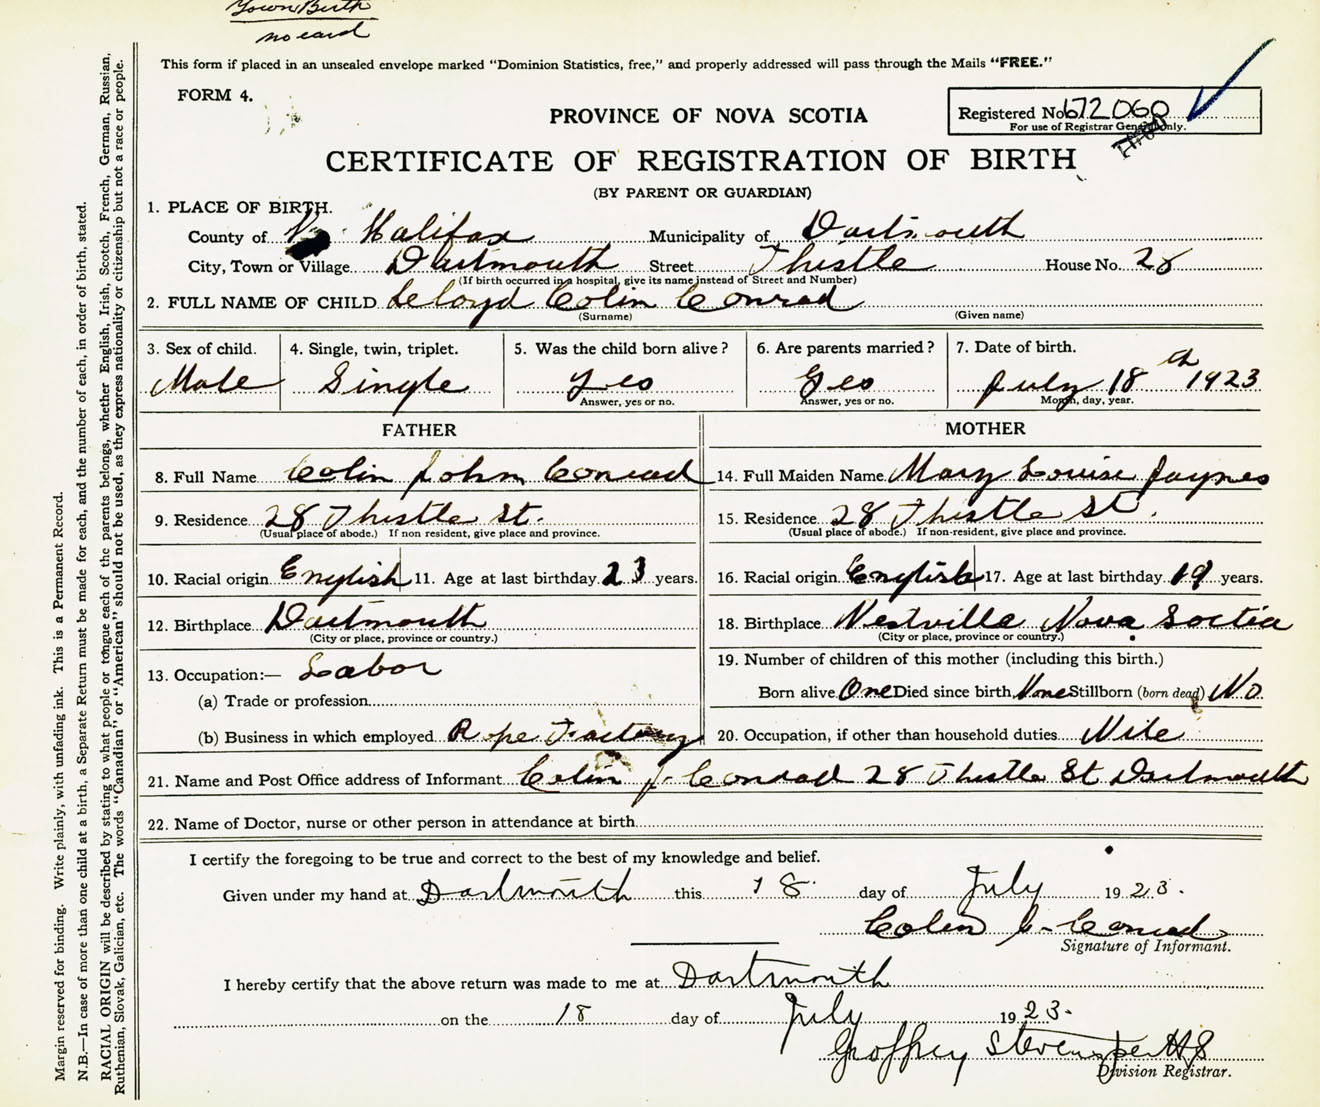 Town Birth
no card
This form if placed in an unsealed envelope marked "Dominion Statistics, free," and properly addressed will pass through the Mails "FREE."
FORM 4.
PROVINCE OF NOVA SCOTIA
Registered No. 672060
For use of Registrar General only.
CERTIFICATE OF REGISTRATION OF BIRTH
(BY PARENT OR GUARDIAN)
1. PLACE OF BIRTH.
County of Halifax Municipality of Dartmouth
City, Town or Village Dartmouth Street Thistle House No. 28
(If birth occurred in a hospital, give its name instead of Street and Number)
2. FULL NAME OF CHILD Leloyd Colin Conrad
(Surname) (Given name)
3. Sex of child. 4. Single, twin, triplet. 5. Was the child born alive? 6. Are parents married? 7. Date of birth.
Male Single Yes Yes July 18th 1923
Answer, yes or no. Answer, yes or no. Month, day, year.
FATHER MOTHER
8. Full Name Colin John Conrad 14. Full Maiden Name Mary Louise Jaynes
9. Residence 28 Thistle St. 15. Residence 28 Thistle St.
(Usual place of abode.) If non resident, give place and province. (Usual place of abode.) If non-resident, give place and province.
10. Racial origin English 11. Age at last birthday 23 years. 16. Racial origin English 17. Age at last birthday 19 years.
12. Birthplace Dartmouth 18. Birthplace Westville Nova Soctia
(City or place, province or country.) (City or place, province or country.)
13. Occupation:— Labor 19. Number of children of this mother (including this birth.)
(a) Trade or profession Born alive One Died since birth None Stillborn (born dead) No
(b) Business in which employed Rope Factory 20. Occupation, if other than household duties
21. Name and Post Office address of Informant Colin J. Conrad 28 Thistle St Dartmouth
22. Name of Doctor, nurse or other person in attendance at birth
I certify the foregoing to be true and correct to the best of my knowledge and belief.
Given under my hand at Dartmouth this 18 day of July 1923.
Colin J. Conrad
Signature of Informant.
I hereby certify that the above return was made to me at Dartmouth
on the 18 day of July 1923.
Geoffrey Stevens per
Division Registrar.
Margin reserved for binding. Write plainly, with unfading ink. This is a Permanent Record.
N.B.—In case of more than one child at a birth, a Separate Return must be made for each, and the number of each, in order of birth, stated.
RACIAL ORIGIN will be described by stating to what people or tongue each of the parents belongs, whether English, Irish, Scotch, French, German, Russian,
Ruthenian, Slovak, Galician, etc. The words "Canadian" or "American" should not be used, as they express nationality or citizenship but not a race or people.